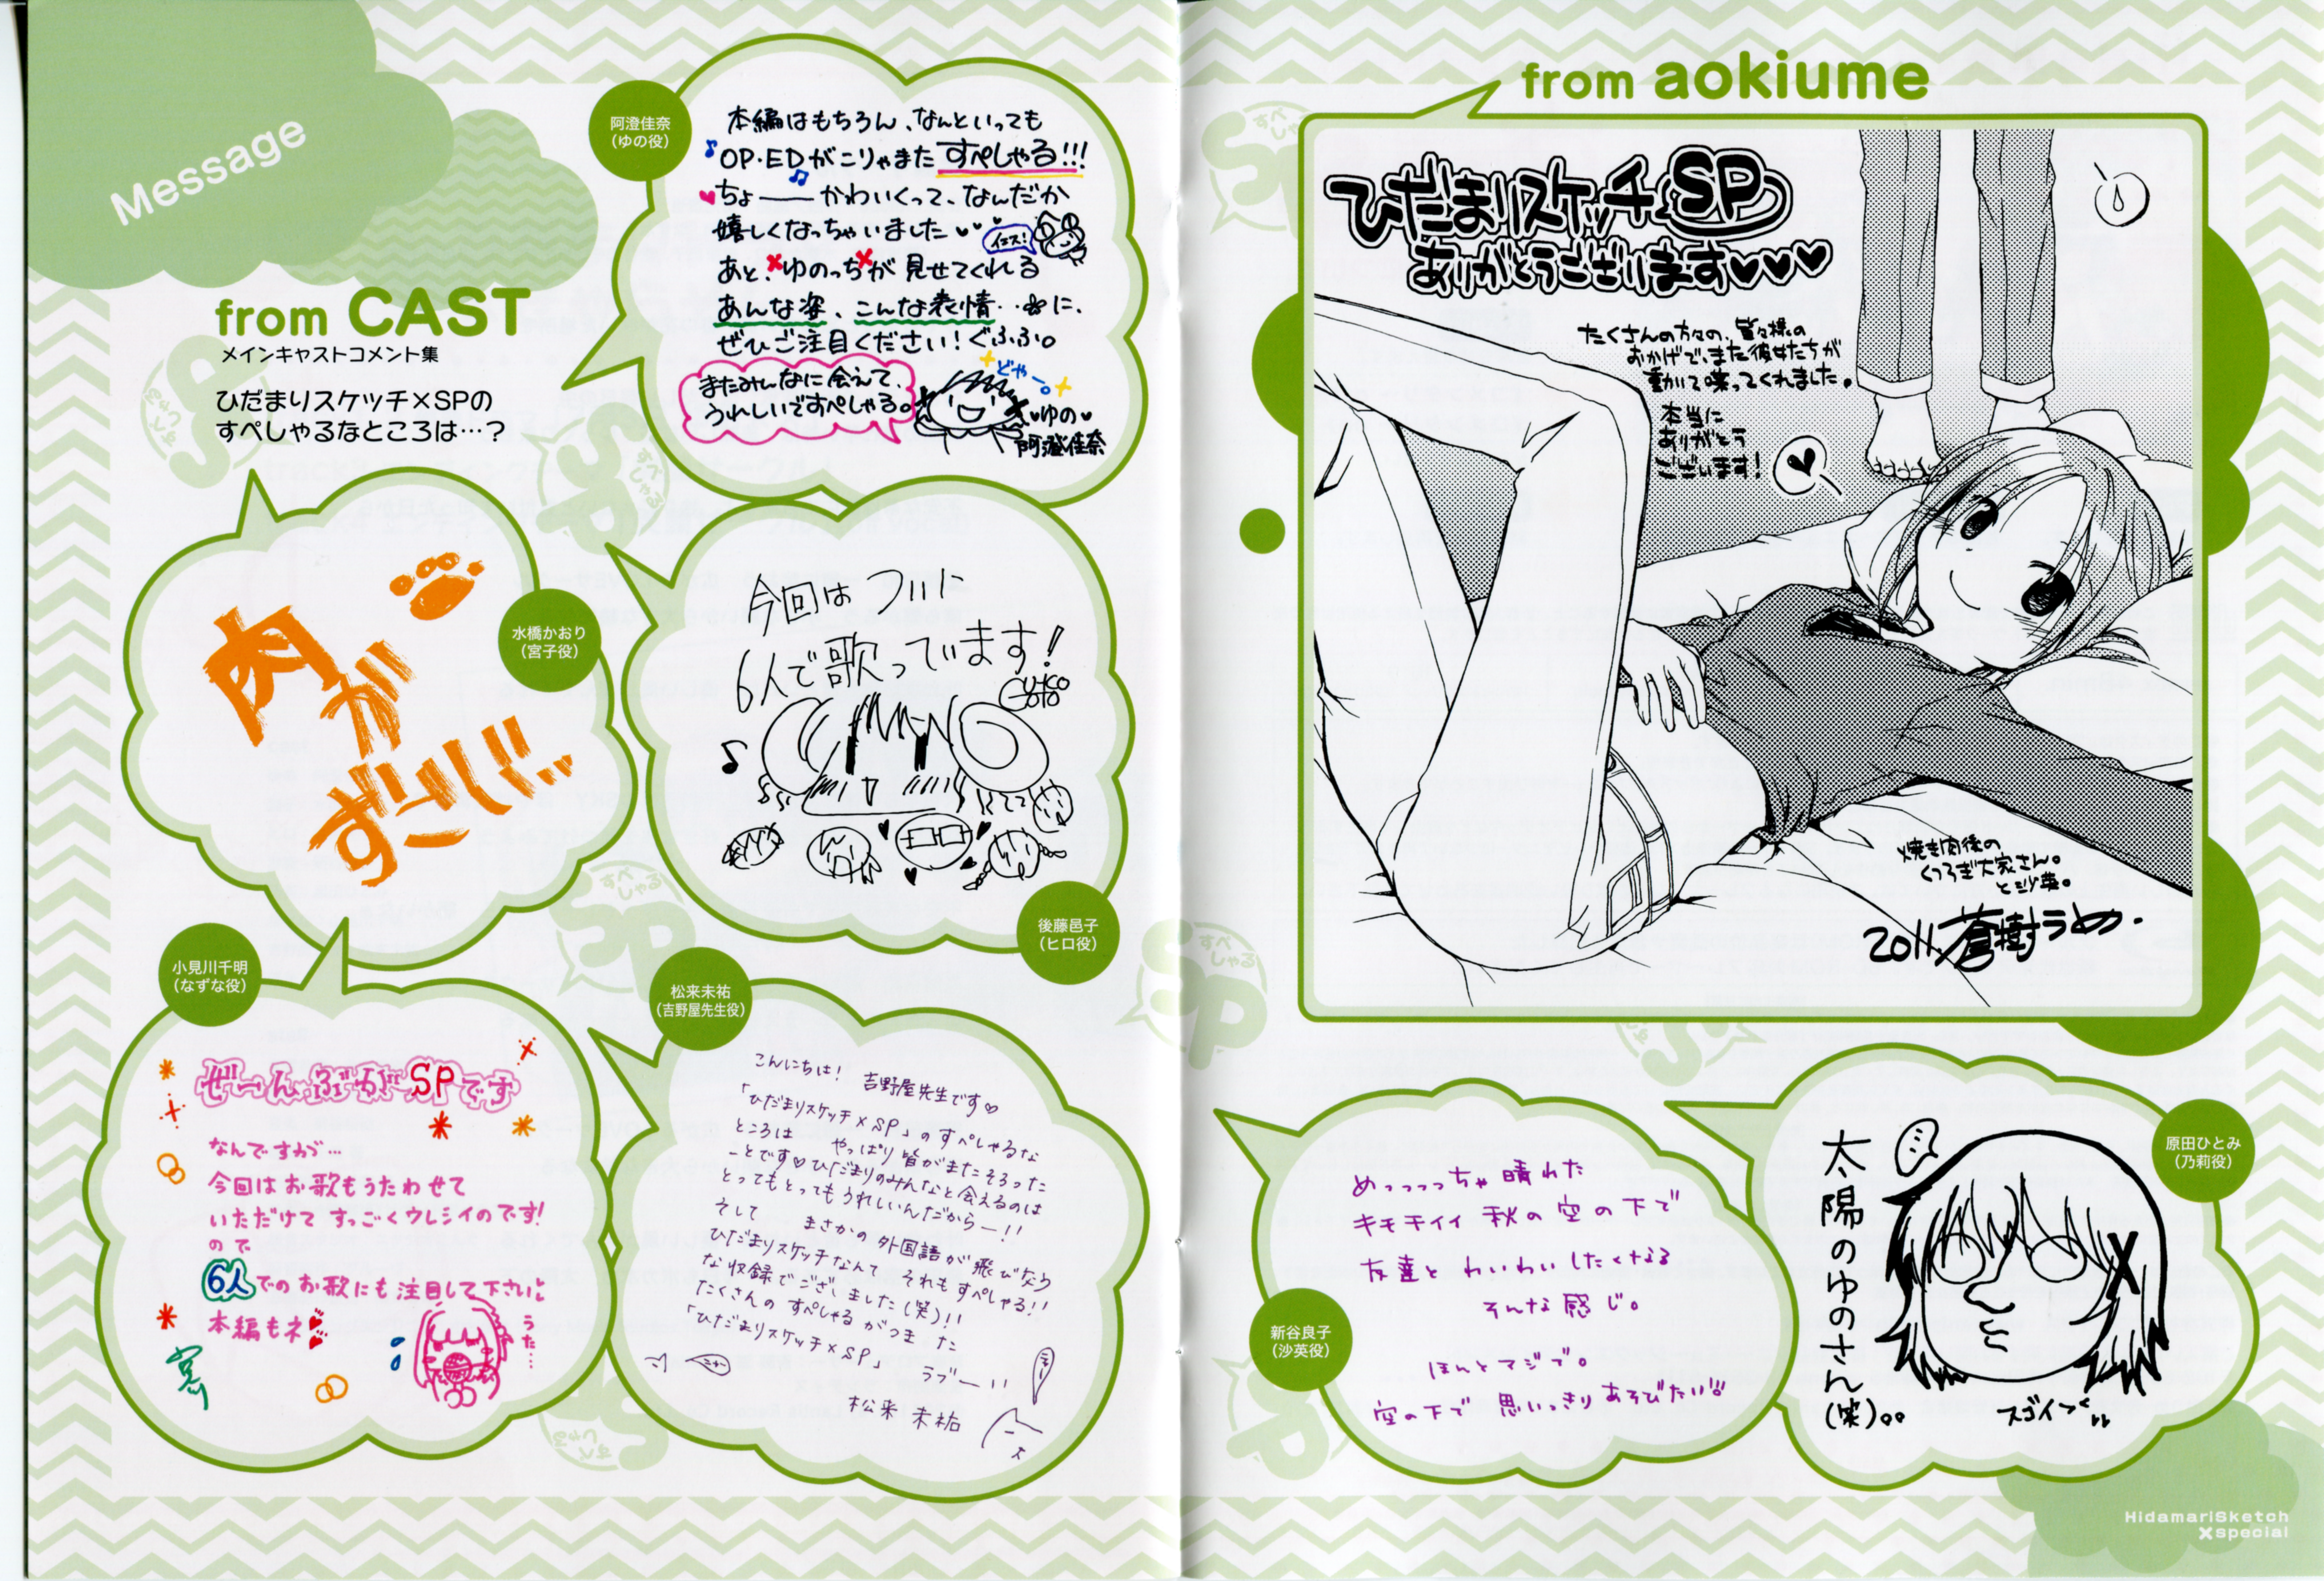 Message
from CAST
メインキャストコメント集
ひだまりスケッチ×SPの
すぺしゃるなところは…？
阿澄佳奈
（ゆの役）
本編はもちろん、なんといっても
OP・EDがこりゃまたすぺしゃる!!!
ちょ——かわいくって、なんだか
嬉しくなっちゃいました
イエス!
あと、ゆのっちが見せてくれる
あんな姿、こんな表情‥に、
ぜひご注目ください!ぐふふ。
またみんなに会えて、
うれしいですぺしゃる。
どやー。
ゆの
阿澄佳奈
水橋かおり
（宮子役）
肉が
ずごじ…
後藤邑子
（ヒロ役）
今回はついに
6人で歌っています!
小見川千明
（なずな役）
ぜーんぶがSPです
なんですわが…
今回はお歌もうたわせて
いただけてすっごくウレシイのです!
ので
6人でのお歌にも注目して下さい
本編もネ
うた…
松来未祐
（吉野屋先生役）
こんにちは! 吉野屋先生です♡
「ひだまりスケッチ×SP」のすぺしゃるな
ところは やっぱり皆がまたそろった
ーとです♡ひだまりのみんなと会えるのは
とってもとってもうれしいんだからー!!
そして まさかの外国語が飛びなう
ひだまりスケッチなんて それもすぺしゃる!!
な収録でございました(笑)!!
たくさんの すぺしゃる がつま た
「ひだまりスケッチ×SP」
ラブー!!
松来 未祐
from aokiume
ひだまりスケッチSP
ありがとうございます♥♥♥
たくさんの方々の、皆々様の
おかげで、また彼女たちが
動いて喋ってくれました。
本当に
ありがとう
ございます!
焼き肉後の
くつろぎ大家さん。
と沙英。
2011.蒼樹うめ.
新谷良子
（沙英役）
めっっっっちゃ晴れた
キモチイイ 秋の空の下で
友達と わいわいしたくなる
そんな感じ。
ほんとマジで。
空の下で 思いっきりあそびたい!!
原田ひとみ
（乃莉役）
太陽のゆのさん(笑)。。
スゴイっ!!
HidamariSketch
×special